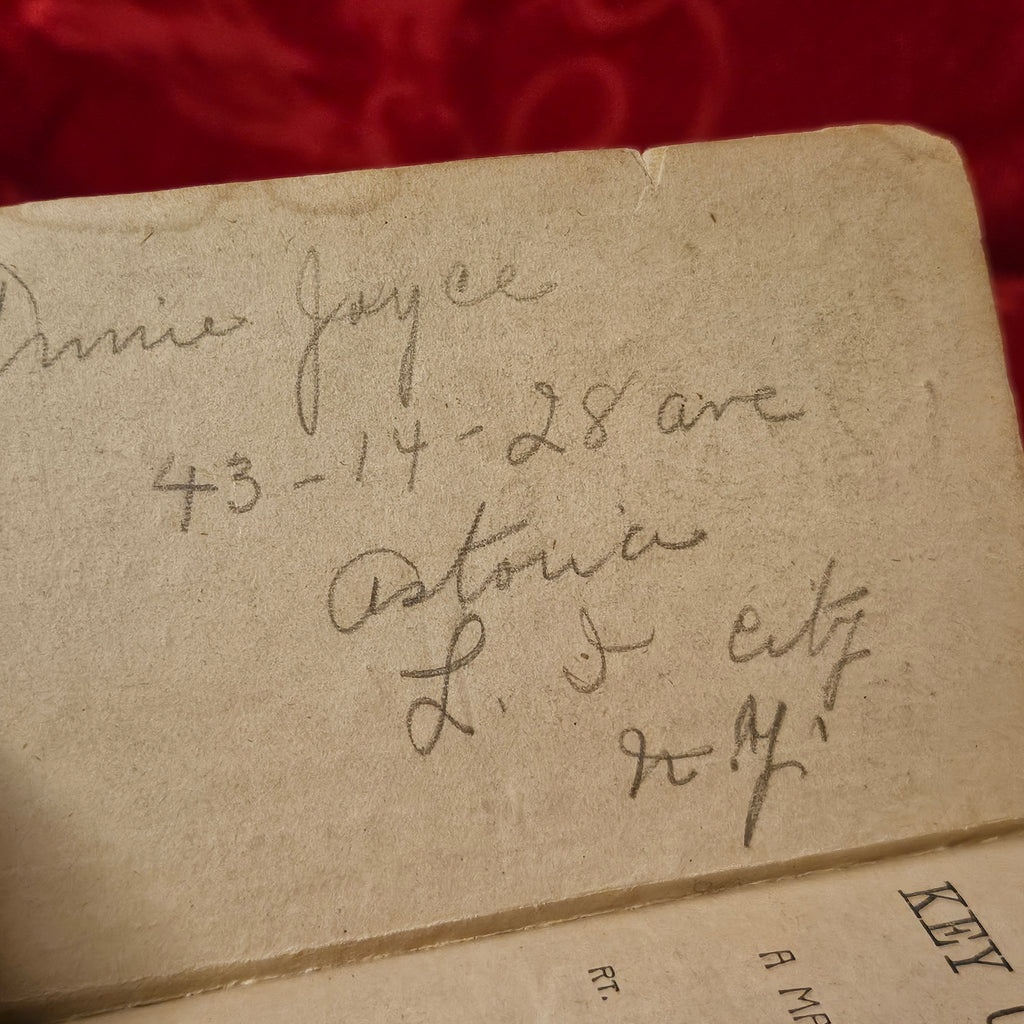 Annie Joyce
43-14-28 ave
Astoria
L. I city
N.Y.
KEY
A MA
RT.